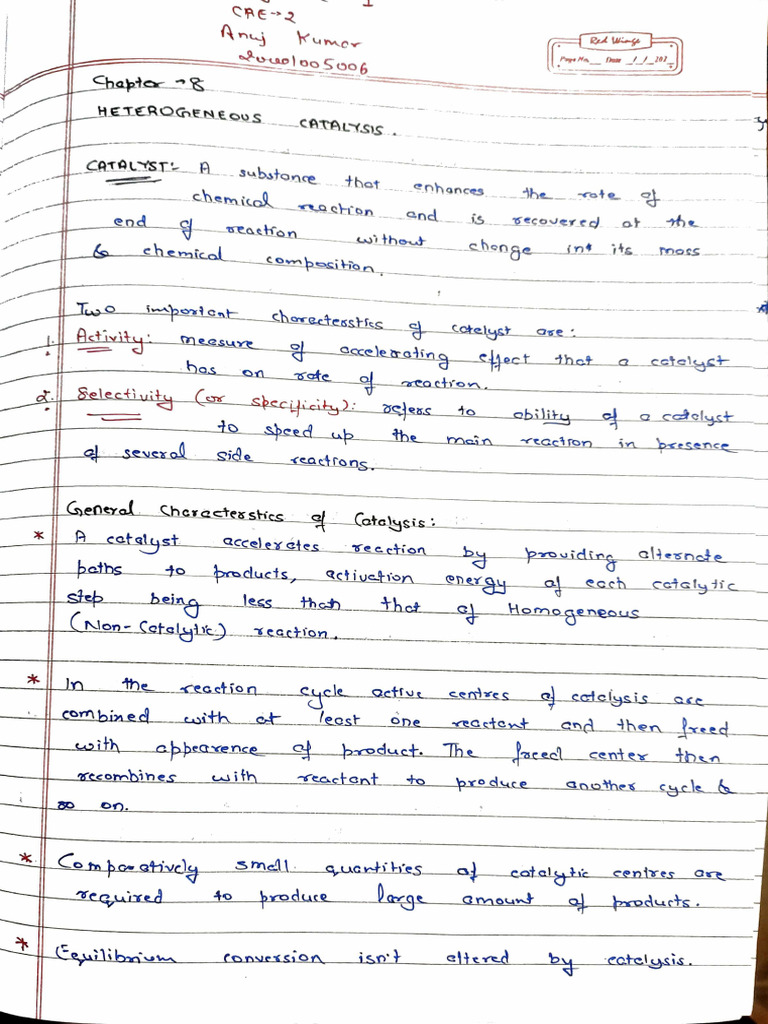 1
CRE→2
Anuj Kumar
Red Wings
Page No. Date / / 202
Chapter → 8
HETEROGENEOUS CATALYSIS.
CATALYST:- A substance that enhances the rate of
chemical reaction and is recovered at the
end of reaction without change in its mass
& chemical composition.
Two important characterstics of catalyst are:
1. Activity: measure of accelerating effect that a catalyst
has on rate of reaction.
2. Selectivity (or specificity): refers to ability of a catalyst
to speed up the main reaction in presence
of several side reactions.
General Characterstics of Catalysis:
* A catalyst accelerates reaction by providing alternate
paths to products, activation energy of each catalytic
step being less than that of Homogeneous
(Non-Catalytic) reaction.
* In the reaction cycle active centres of catalysis are
combined with at least one reactant and then freed
with appearence of product. The freed center then
recombines with reactant to produce another cycle &
so on.
* Comparatively small quantities of catalytic centres are
required to produce large amount of products.
* Equilibrium conversion isn't altered by catalysis.